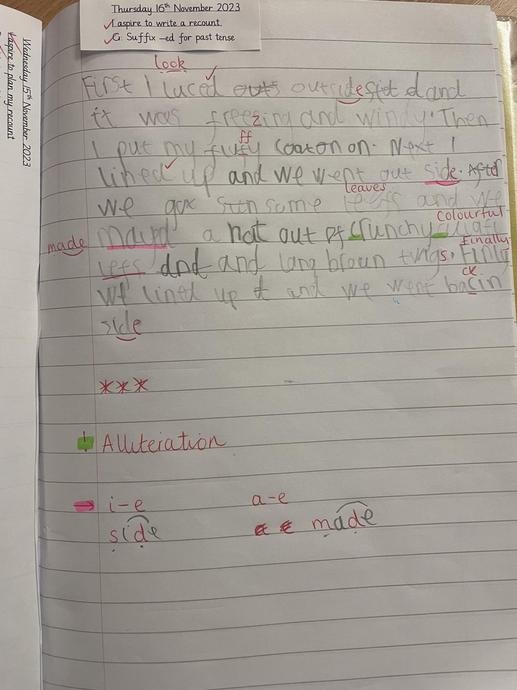 Thursday 16th November 2023
I aspire to write a recount.
G: Suffix -ed for past tense
Wednesday 15th November 2023
I aspire to plan my recount
look
First I luced outside and
it was freezing and windy. Then
ff
I put my flufy coat on on. Next I
lined up and we went out side. After
leaves
we some and we
colourful
made a not out of crunchy
finally
lefs and and long broun twigs. Finly
ck
we lined up and we went bacin
side
***
! Alliteration
→ i-e a-e
side made